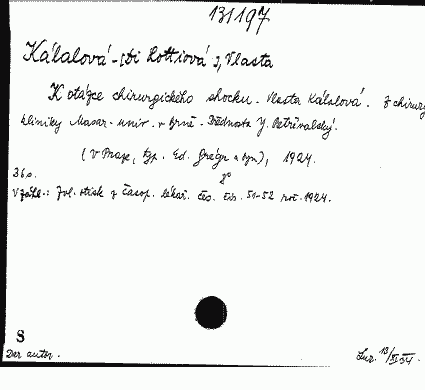 131197
Kálalová - [Di Lottiová], Vlasta
K otázce chirurgického shocku. Vlasta Kálalová. Z chirurg
kliniky Masar. univ. v Brně. Přednosta J. Petřivalský.
(V Praze, typ. Ed. Grégr a syn), 1924.
36 s. 2°
V záhl.: Zvl. otisk z Časop. lékař. čes. čís. 51-52 roč. 1924.
S
Dar autor.
18/XI 34